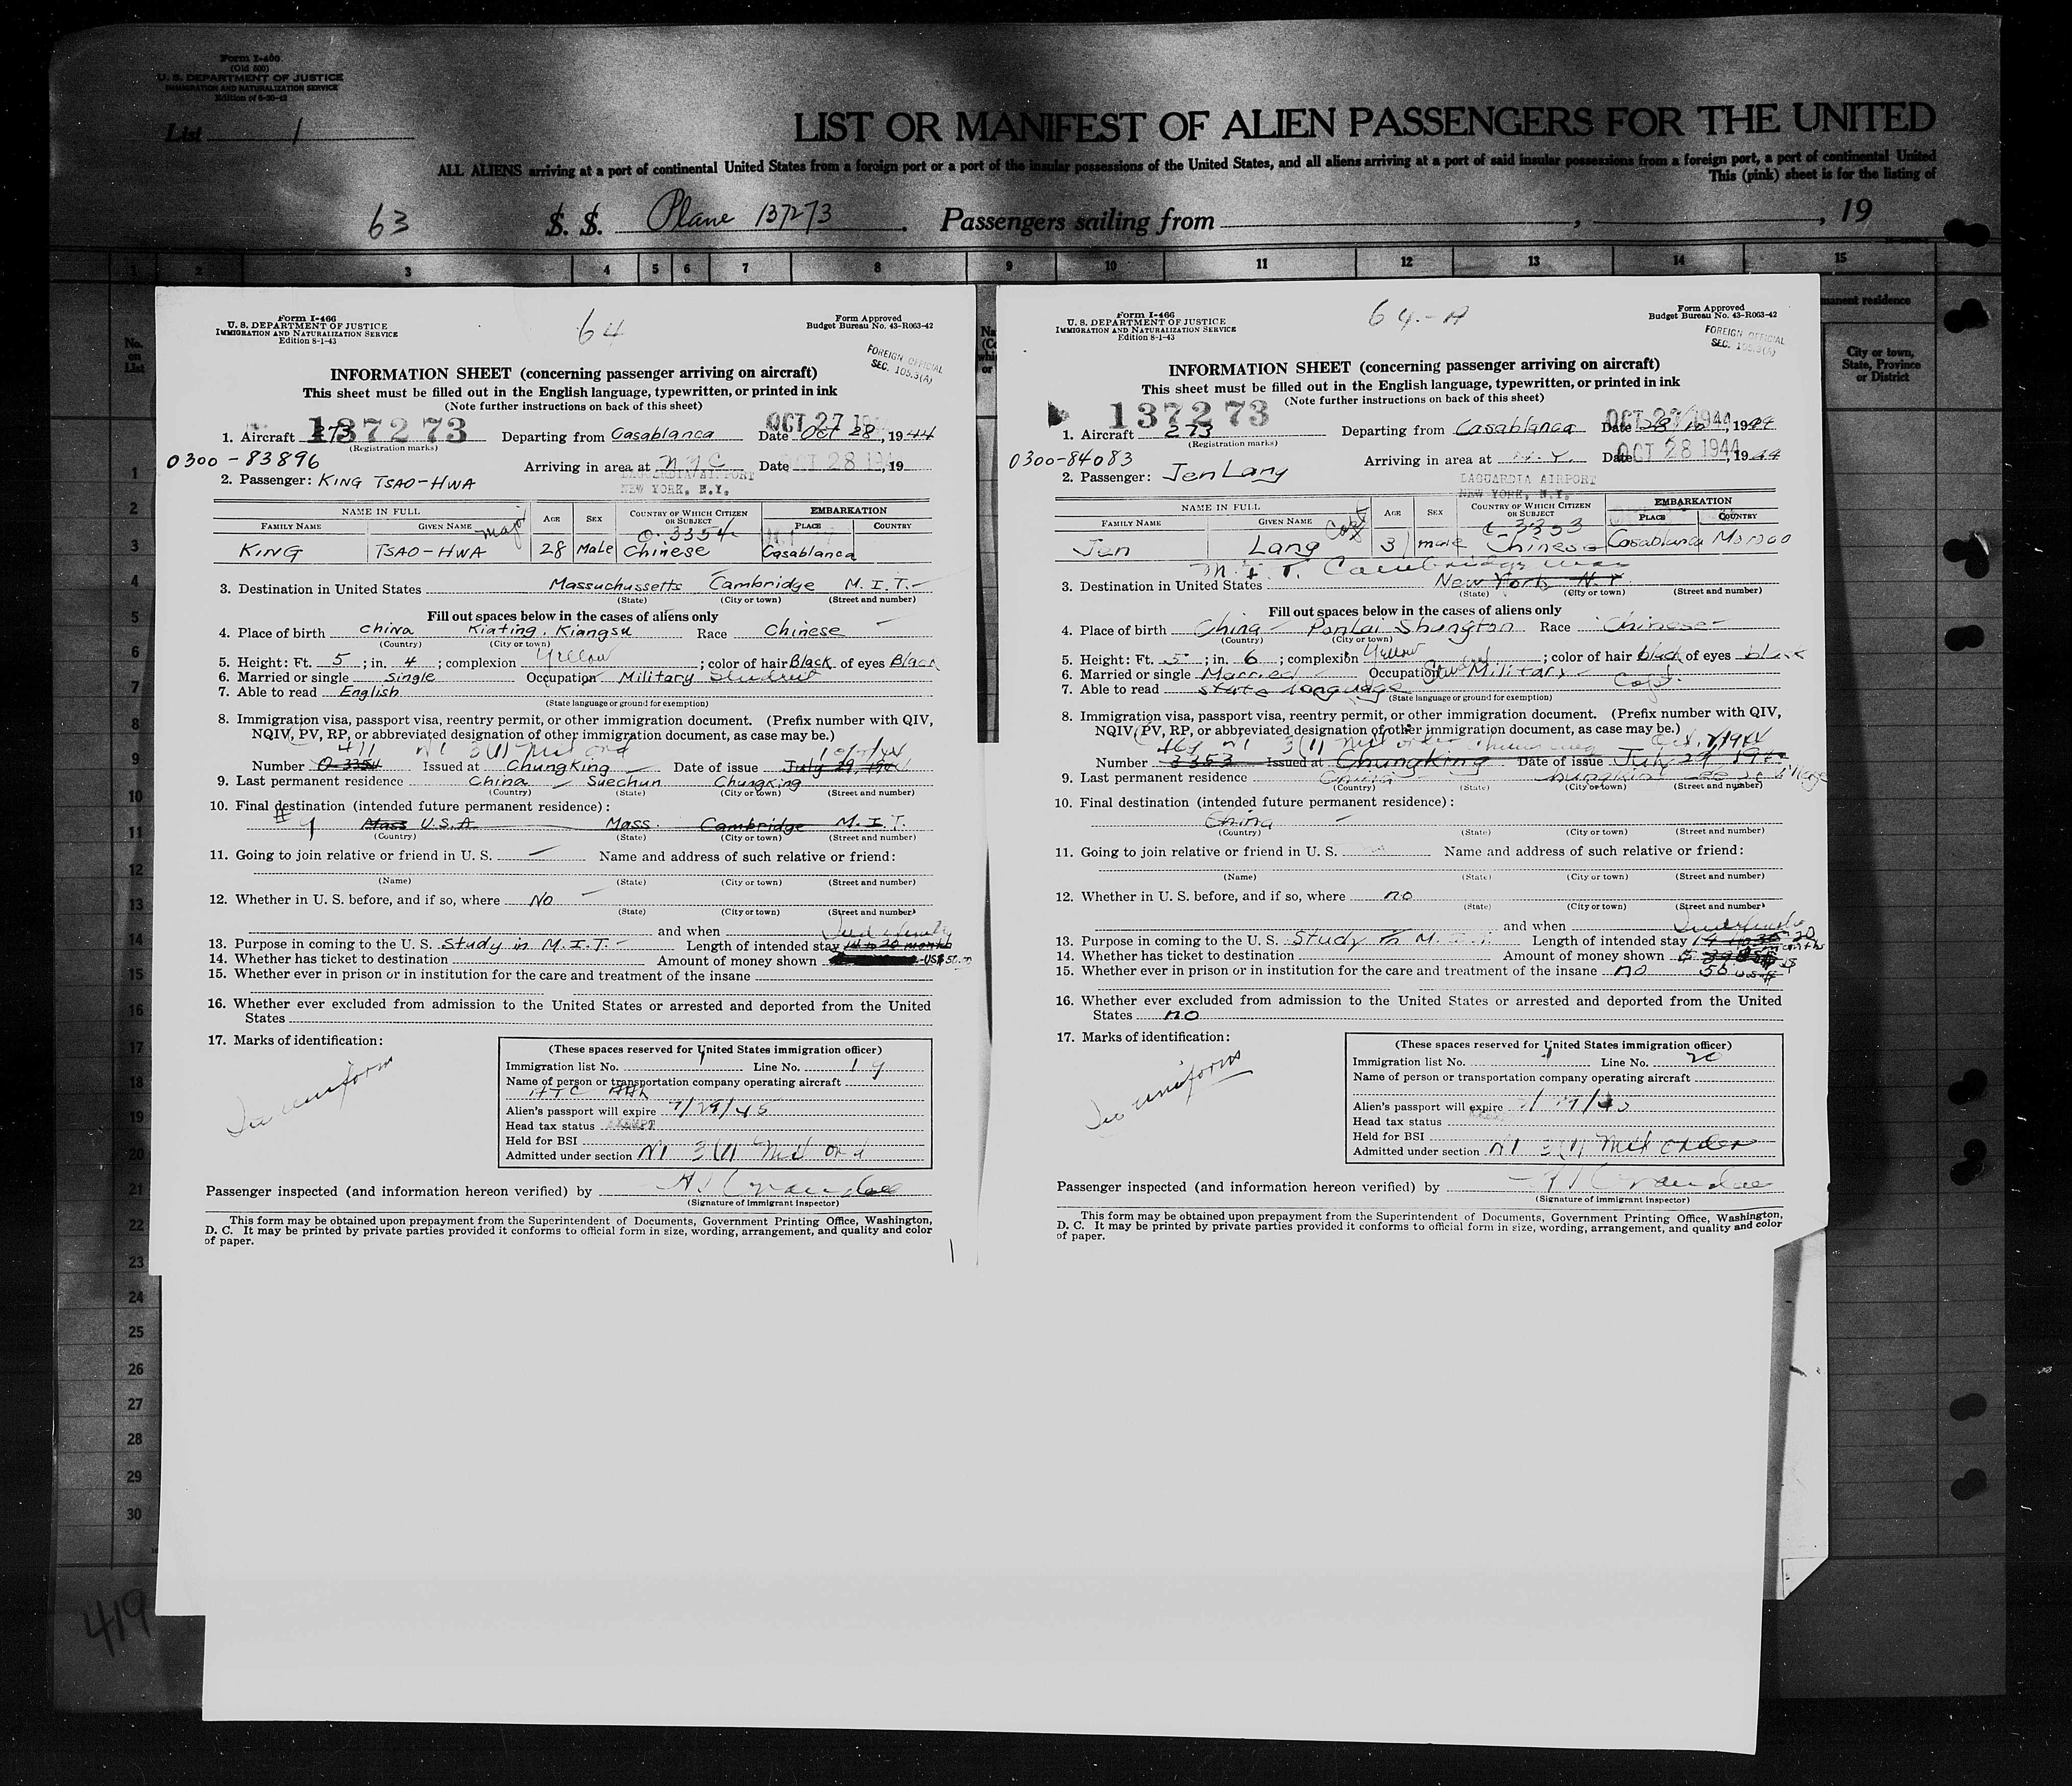 Form I-460
(Old 500)
U. S. DEPARTMENT OF JUSTICE
IMMIGRATION AND NATURALIZATION SERVICE
Edition of 6-20-42
List 1
LIST OR MANIFEST OF ALIEN PASSENGERS FOR THE UNITED
ALL ALIENS arriving at a port of continental United States from a foreign port or a port of the insular possessions of the United States, and all aliens arriving at a port of said insular possessions from a foreign port, a port of continental United
This (pink) sheet is for the listing of
63 S. S. Plane 137273 Passengers sailing from , , 19
1 2 3 4 5 6 7 8 9 10 11 12 13 14 15
No. on List
manent residence
City or town, State, Province or District
1
2
3
4
5
6
7
8
9
10
11
12
13
14
15
16
17
18
19
20
21
22
23
24
25
26
27
28
29
30
419
Form I-466
U. S. DEPARTMENT OF JUSTICE
IMMIGRATION AND NATURALIZATION SERVICE
Edition 8-1-43
64
Form Approved
Budget Bureau No. 43-R063-42
FOREIGN OFFICIAL
SEC. 105.3(A)
INFORMATION SHEET (concerning passenger arriving on aircraft)
This sheet must be filled out in the English language, typewritten, or printed in ink
(Note further instructions on back of this sheet)
137273 OCT 27 19
1. Aircraft 273 Departing from Casablanca Date Oct 28, 1944
(Registration marks)
0300-83896
Arriving in area at N.Y.C Date OCT 28 19 , 19
LAGUARDIA AIRPORT
NEW YORK, N.Y.
2. Passenger: KING TSAO-HWA
NAME IN FULL AGE SEX COUNTRY OF WHICH CITIZEN OR SUBJECT EMBARKATION
FAMILY NAME GIVEN NAME PLACE COUNTRY
Maj O-3354
KING TSAO-HWA 28 Male Chinese Casablanca
3. Destination in United States Massuchussetts Cambridge M.I.T.
(State) (City or town) (Street and number)
Fill out spaces below in the cases of aliens only
4. Place of birth China Kiating, Kiangsu Race Chinese
(Country) (City or town)
5. Height: Ft. 5; in. 4; complexion Yellow; color of hair Black of eyes Black
6. Married or single single Occupation Military Student
7. Able to read English
(State language or ground for exemption)
8. Immigration visa, passport visa, reentry permit, or other immigration document. (Prefix number with QIV,
NQIV, PV, RP, or abbreviated designation of other immigration document, as case may be.)
411 3(1) Mil ord
Number O-3354 Issued at Chungking Date of issue July 29, 1944
9. Last permanent residence China Suechun Chungking
(Country) (State) (City or town) (Street and number)
10. Final destination (intended future permanent residence):
Mass U.S.A Mass. Cambridge M.I.T.
(Country) (State) (City or town) (Street and number)
11. Going to join relative or friend in U. S. — Name and address of such relative or friend:
(Name) (State) (City or town) (Street and number)
12. Whether in U. S. before, and if so, where No
(State) (City or town) (Street and number)
and when
13. Purpose in coming to the U. S. Study in M.I.T. Length of intended stay 14 to 20 months
14. Whether has ticket to destination Amount of money shown US$ 50.00
15. Whether ever in prison or in institution for the care and treatment of the insane
16. Whether ever excluded from admission to the United States or arrested and deported from the United
States
17. Marks of identification:
In uniform
(These spaces reserved for United States immigration officer)
Immigration list No. 1 Line No. 19
Name of person or transportation company operating aircraft
ATC
Alien's passport will expire 7/29/45
Head tax status EXEMPT
Held for BSI
Admitted under section 3(1) Mil Ord
Passenger inspected (and information hereon verified) by
(Signature of immigrant inspector)
This form may be obtained upon prepayment from the Superintendent of Documents, Government Printing Office, Washington,
D. C. It may be printed by private parties provided it conforms to official form in size, wording, arrangement, and quality and color
of paper.
Form I-466
U. S. DEPARTMENT OF JUSTICE
IMMIGRATION AND NATURALIZATION SERVICE
Edition 8-1-43
64-A
Form Approved
Budget Bureau No. 43-R063-42
FOREIGN OFFICIAL
SEC. 105.3(A)
INFORMATION SHEET (concerning passenger arriving on aircraft)
This sheet must be filled out in the English language, typewritten, or printed in ink
(Note further instructions on back of this sheet)
137273 OCT 27 1944
1. Aircraft 273 Departing from Casablanca Date 28 10, 1944
(Registration marks)
0300-84083
Arriving in area at N.Y. Date OCT 28 1944, 1944
LAGUARDIA AIRPORT
NEW YORK, N.Y.
2. Passenger: Jen Lang
NAME IN FULL AGE SEX COUNTRY OF WHICH CITIZEN OR SUBJECT EMBARKATION
FAMILY NAME GIVEN NAME PLACE COUNTRY
Capt 3353
Jen Lang 31 male Chinese Casablanca Morocco
M.I.T. Cambridge Mass
3. Destination in United States New York N.Y.
(State) (City or town) (Street and number)
Fill out spaces below in the cases of aliens only
4. Place of birth China Ponlai Shungton Race Chinese
(Country) (City or town)
5. Height: Ft. 5; in. 6; complexion Yellow; color of hair black of eyes black
6. Married or single Married Occupation Student Military Capt.
7. Able to read State language
(State language or ground for exemption)
8. Immigration visa, passport visa, reentry permit, or other immigration document. (Prefix number with QIV,
NQIV, PV, RP, or abbreviated designation of other immigration document, as case may be.)
3(1) Mil order
Number 3353 Issued at Chungking Date of issue July 29, 1944
9. Last permanent residence China Chungking
(Country) (State) (City or town) (Street and number)
10. Final destination (intended future permanent residence):
China
(Country) (State) (City or town) (Street and number)
11. Going to join relative or friend in U. S. no Name and address of such relative or friend:
(Name) (State) (City or town) (Street and number)
12. Whether in U. S. before, and if so, where no
(State) (City or town) (Street and number)
and when
13. Purpose in coming to the U. S. Study in M.I.T. Length of intended stay
14. Whether has ticket to destination Amount of money shown
15. Whether ever in prison or in institution for the care and treatment of the insane no 50 US$
16. Whether ever excluded from admission to the United States or arrested and deported from the United
States no
17. Marks of identification:
In uniform
(These spaces reserved for United States immigration officer)
Immigration list No. 1 Line No. 20
Name of person or transportation company operating aircraft
Alien's passport will expire
Head tax status
Held for BSI
Admitted under section 3(1) Mil Order
Passenger inspected (and information hereon verified) by
(Signature of immigrant inspector)
This form may be obtained upon prepayment from the Superintendent of Documents, Government Printing Office, Washington,
D. C. It may be printed by private parties provided it conforms to official form in size, wording, arrangement, and quality and color
of paper.